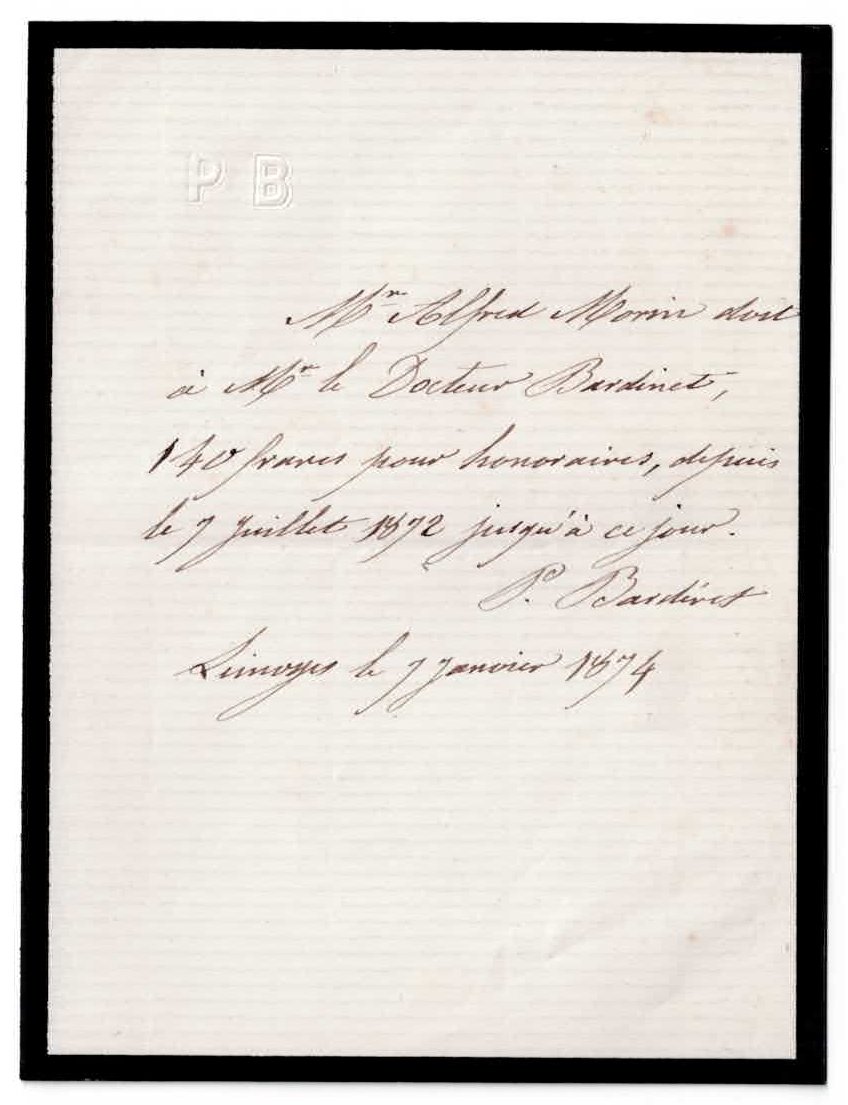 P B
Mr Alfred Morin doit
à Mr le Docteur Bardinet,
140 francs pour honoraires, depuis
le 7 Juillet 1872 jusqu'à ce jour.
P. Bardinet
Limoges le 7 Janvier 1874